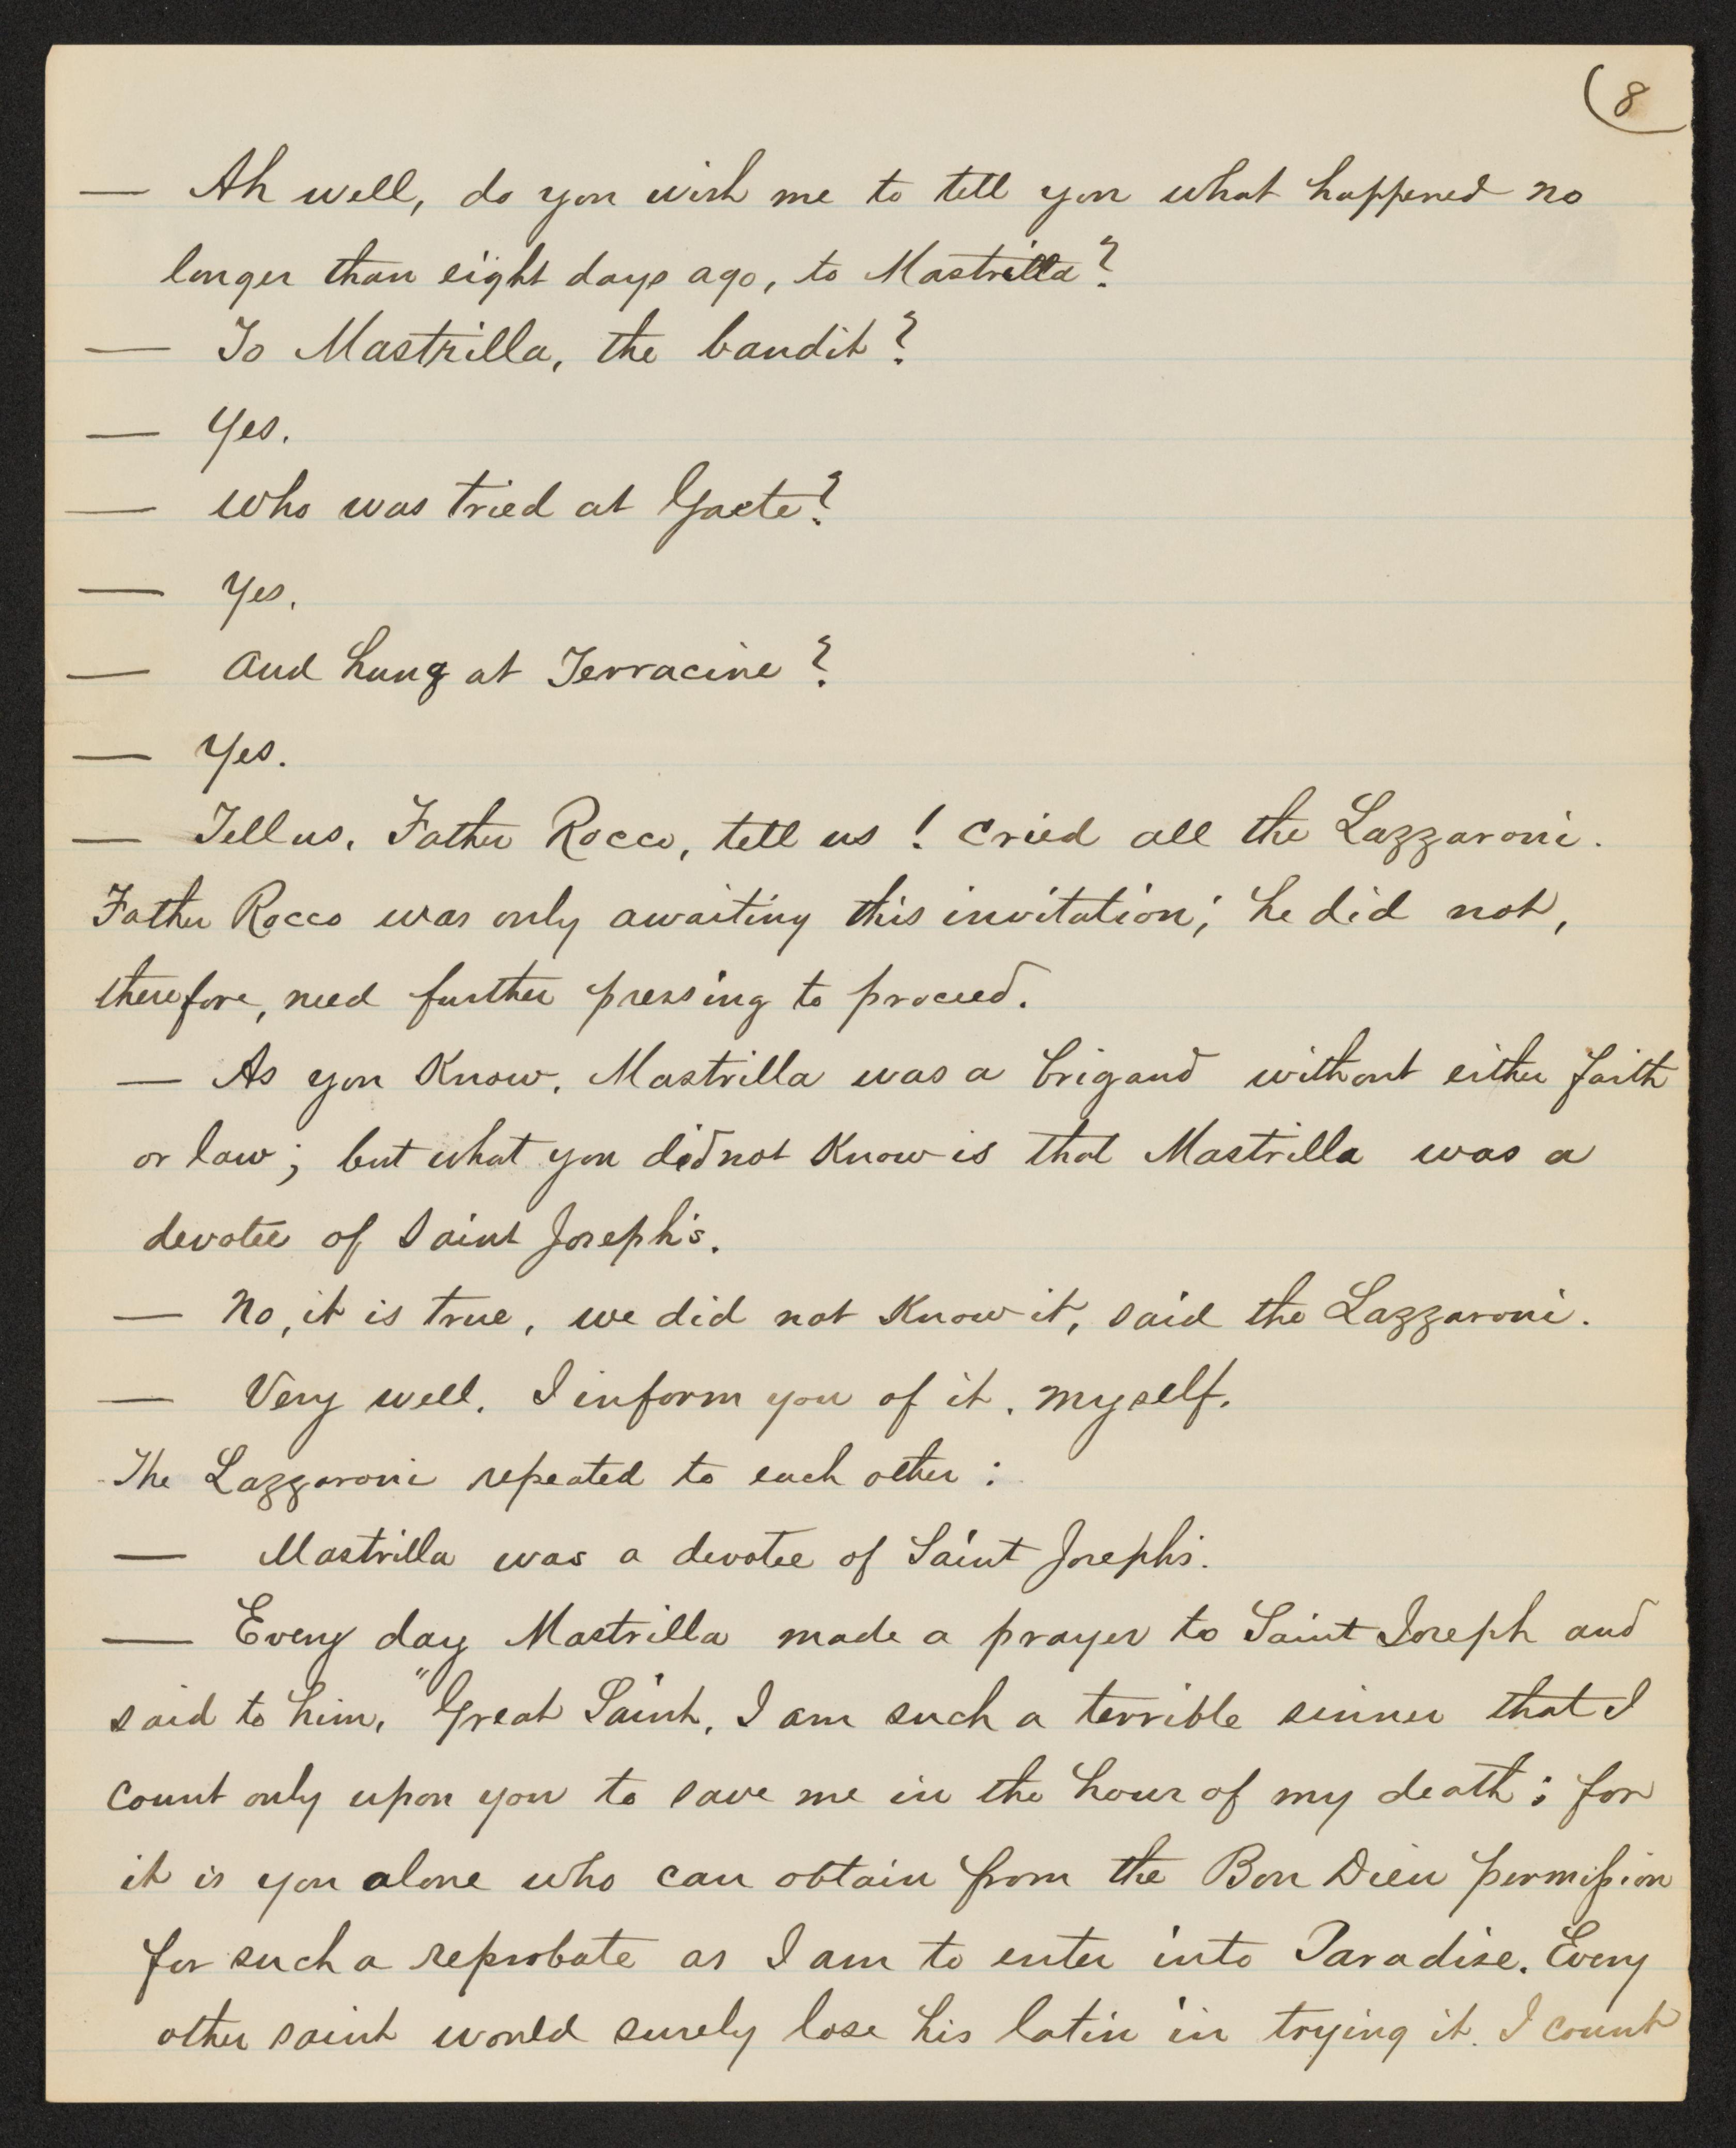 (8
— Ah well, do you wish me to tell you what happened no
longer than eight days ago, to Mastrilla?
— To Mastrilla, the bandit?
— Yes.
— Who was tried at Gaete?
— Yes.
— And hung at Terracine?
— Yes.
— Tell us, Father Rocco, tell us! cried all the Lazzaroni.
Father Rocco was only awaiting this invitation; he did not,
therefore, need further pressing to proceed.
— As you know, Mastrilla was a brigand without either faith
or law; but what you did not know is that Mastrilla was a
devotee of Saint Joseph's.
— No, it is true, we did not know it, said the Lazzaroni.
— Very well. I inform you of it, myself.
The Lazzaroni repeated to each other:
— Mastrilla was a devotee of Saint Joseph's.
— Every day Mastrilla made a prayer to Saint Joseph and
said to him, "Great Saint, I am such a terrible sinner that I
count only upon you to save me in the hour of my death; for
it is you alone who can obtain from the Bon Dieu permission
for such a reprobate as I am to enter into Paradise. Every
other saint would surely lose his latin in trying it. I count